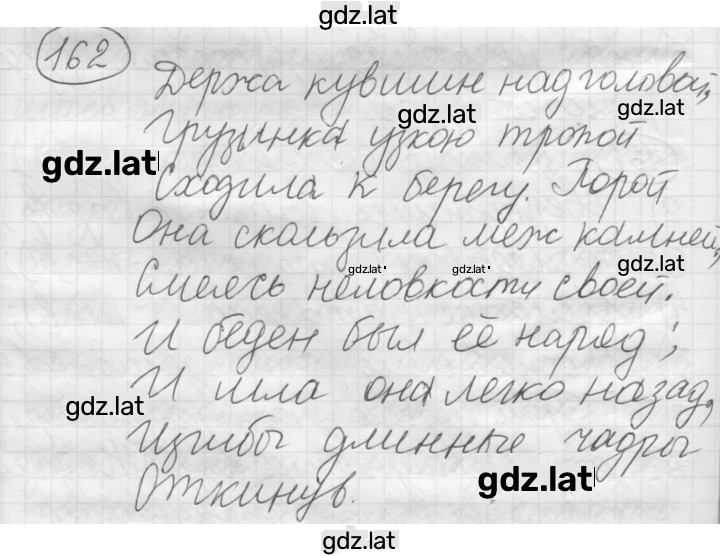 gdz.lat
162
Держа кувшин над головой,
gdz.lat
gdz.lat
Грузинка узкою тропой
gdz.lat
Сходила к берегу. Порой
Она скользила меж камней,
gdz.lat
gdz.lat
gdz.lat
Смеясь неловкости своей.
И беден был её наряд;
И шла она легко назад,
gdz.lat
Изгибы длинные чадры
gdz.lat
Откинув.
gdz.lat